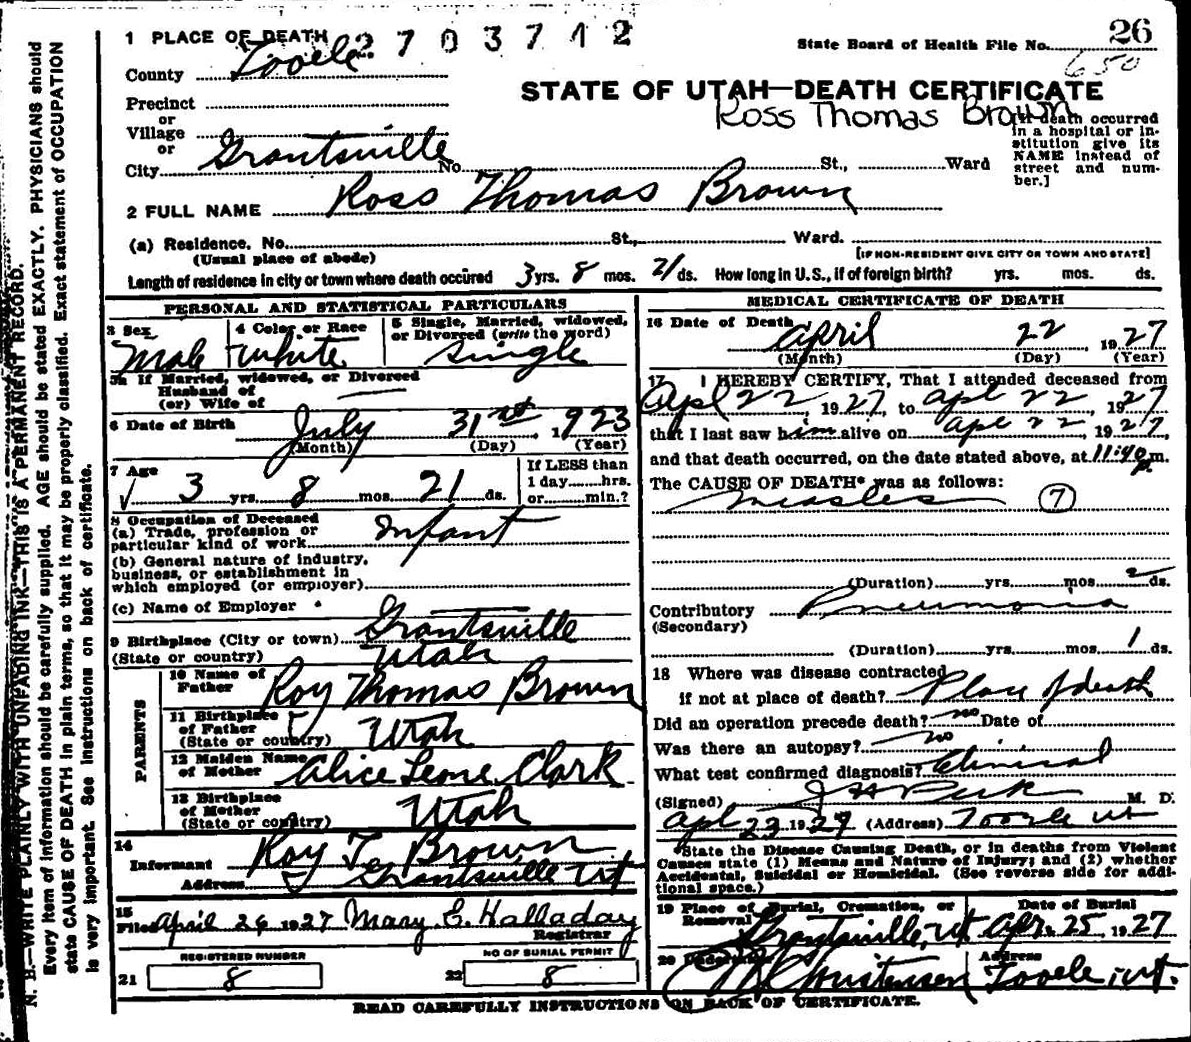 1 PLACE OF DEATH 2703712
State Board of Health File No. 26
650
County Tooele
STATE OF UTAH—DEATH CERTIFICATE
Ross Thomas Brown
Precinct
or
Village
or
City Grantsville No. St., Ward
[If death occurred in a hospital or institution give its NAME instead of street and number.]
2 FULL NAME Ross Thomas Brown
(a) Residence. No. St., Ward.
(Usual place of abode) [IF NON-RESIDENT GIVE CITY OR TOWN AND STATE]
Length of residence in city or town where death occured 3 yrs. 8 mos. 21 ds. How long in U.S., if of foreign birth? yrs. mos. ds.
PERSONAL AND STATISTICAL PARTICULARS
3 Sex Male
4 Color or Race White
5 Single, Married, widowed, or Divorced (write the word) Single
5a If Married, widowed, or Divorced
Husband of
(or) Wife of
6 Date of Birth July 31st, 1923
(Month) (Day) (Year)
7 Age 3 yrs. 8 mos. 21 ds.
If LESS than
1 day hrs.
or min.?
8 Occupation of Deceased
(a) Trade, profession or
particular kind of work Infant
(b) General nature of industry,
business, or establishment in
which employed (or employer)
(c) Name of Employer
9 Birthplace (City or town) Grantsville
(State or country) Utah
PARENTS
10 Name of Father Roy Thomas Brown
11 Birthplace of Father (State or country) Utah
12 Maiden Name of Mother Alice Leone Clark
13 Birthplace of Mother (State or country) Utah
14 Informant Roy T. Brown
Address Grantsville Ut
15 Filed April 26 1927 Mary E. Halladay
Registrar
REGISTERED NUMBER
21 8
NO OF BURIAL PERMIT
22 8
MEDICAL CERTIFICATE OF DEATH
16 Date of Death April 22, 1927
(Month) (Day) (Year)
17 I HEREBY CERTIFY, That I attended deceased from
Apl 22, 1927, to apl 22, 1927
that I last saw him alive on apl 22, 1927,
and that death occurred, on the date stated above, at 11:40 p.m.
The CAUSE OF DEATH* was as follows:
Measles 7
(Duration) yrs. mos. 2 ds.
Contributory Pneumonia
(Secondary)
(Duration) yrs. mos. 1 ds.
18 Where was disease contracted
if not at place of death? Place of death
Did an operation precede death? no Date of
Was there an autopsy? no
What test confirmed diagnosis? Clinical
(Signed) J H Peck M. D.
Apl 23 1927 (Address) Tooele Ut
*State the Disease Causing Death, or in deaths from Violent
Causes state (1) Means and Nature of Injury; and (2) whether
Accidental, Suicidal or Homicidal. (See reverse side for addi-
tional space.)
19 Place of Burial, Cremation, or Removal Grantsville, Ut
Date of Burial Apr. 25, 1927
20 Undertaker Christensen
Address Tooele, Ut.
READ CAREFULLY INSTRUCTIONS ON BACK OF CERTIFICATE.
N. B.—WRITE PLAINLY WITH UNFADING INK—THIS IS A PERMANENT RECORD.
Every item of information should be carefully supplied. AGE should be stated EXACTLY. PHYSICIANS should
state CAUSE OF DEATH in plain terms, so that it may be properly classified. Exact statement of OCCUPATION
is very important. See instructions on back of certificate.